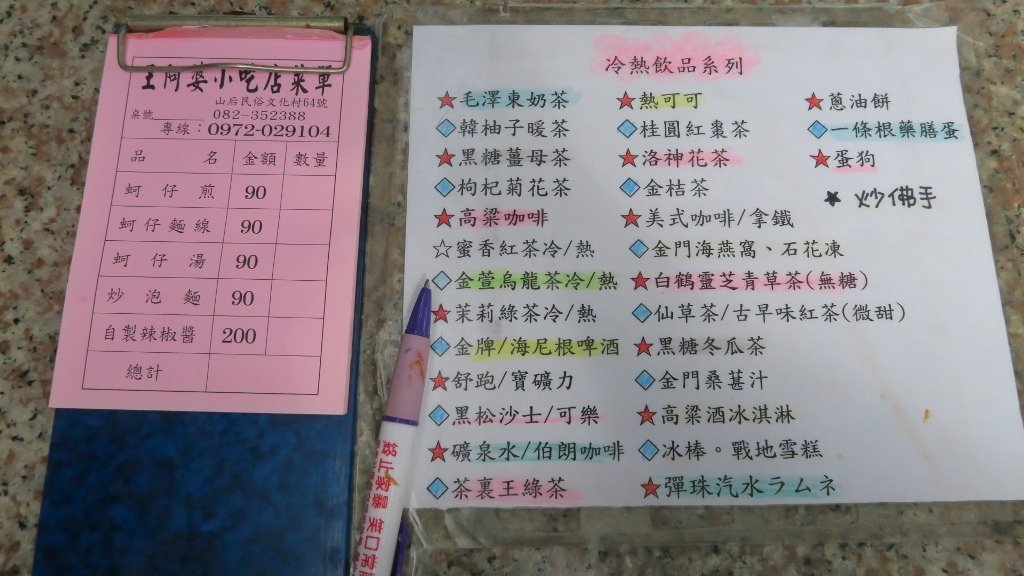 王阿婆小吃店菜單
山后民俗文化村64號
桌號 082-352388
專線：0972-029104
品名 金額 數量
蚵仔煎 90
蚵仔麵線 90
蚵仔湯 90
炒泡麵 90
自製辣椒醬 200
總計
冷熱飲品系列
★毛澤東奶茶
◇韓柚子暖茶
★黑糖薑母茶
◇枸杞菊花茶
★高粱咖啡
☆蜜香紅茶冷/熱
◇金萱烏龍茶冷/熱
★茉莉綠茶冷/熱
◇金牌/海尼根啤酒
★舒跑/寶礦力
◇黑松沙士/可樂
★礦泉水/伯朗咖啡
◇茶裏王綠茶
★熱可可
◇桂圓紅棗茶
★洛神花茶
◇金桔茶
★美式咖啡/拿鐵
◇金門海燕窩、石花凍
★白鶴靈芝青草茶(無糖)
◇仙草茶/古早味紅茶(微甜)
★黑糖冬瓜茶
◇金門桑葚汁
★高粱酒冰淇淋
◇冰棒。戰地雪糕
★彈珠汽水ラムネ
★蔥油餅
◇一條根藥膳蛋
★蛋狗
★炒佛手